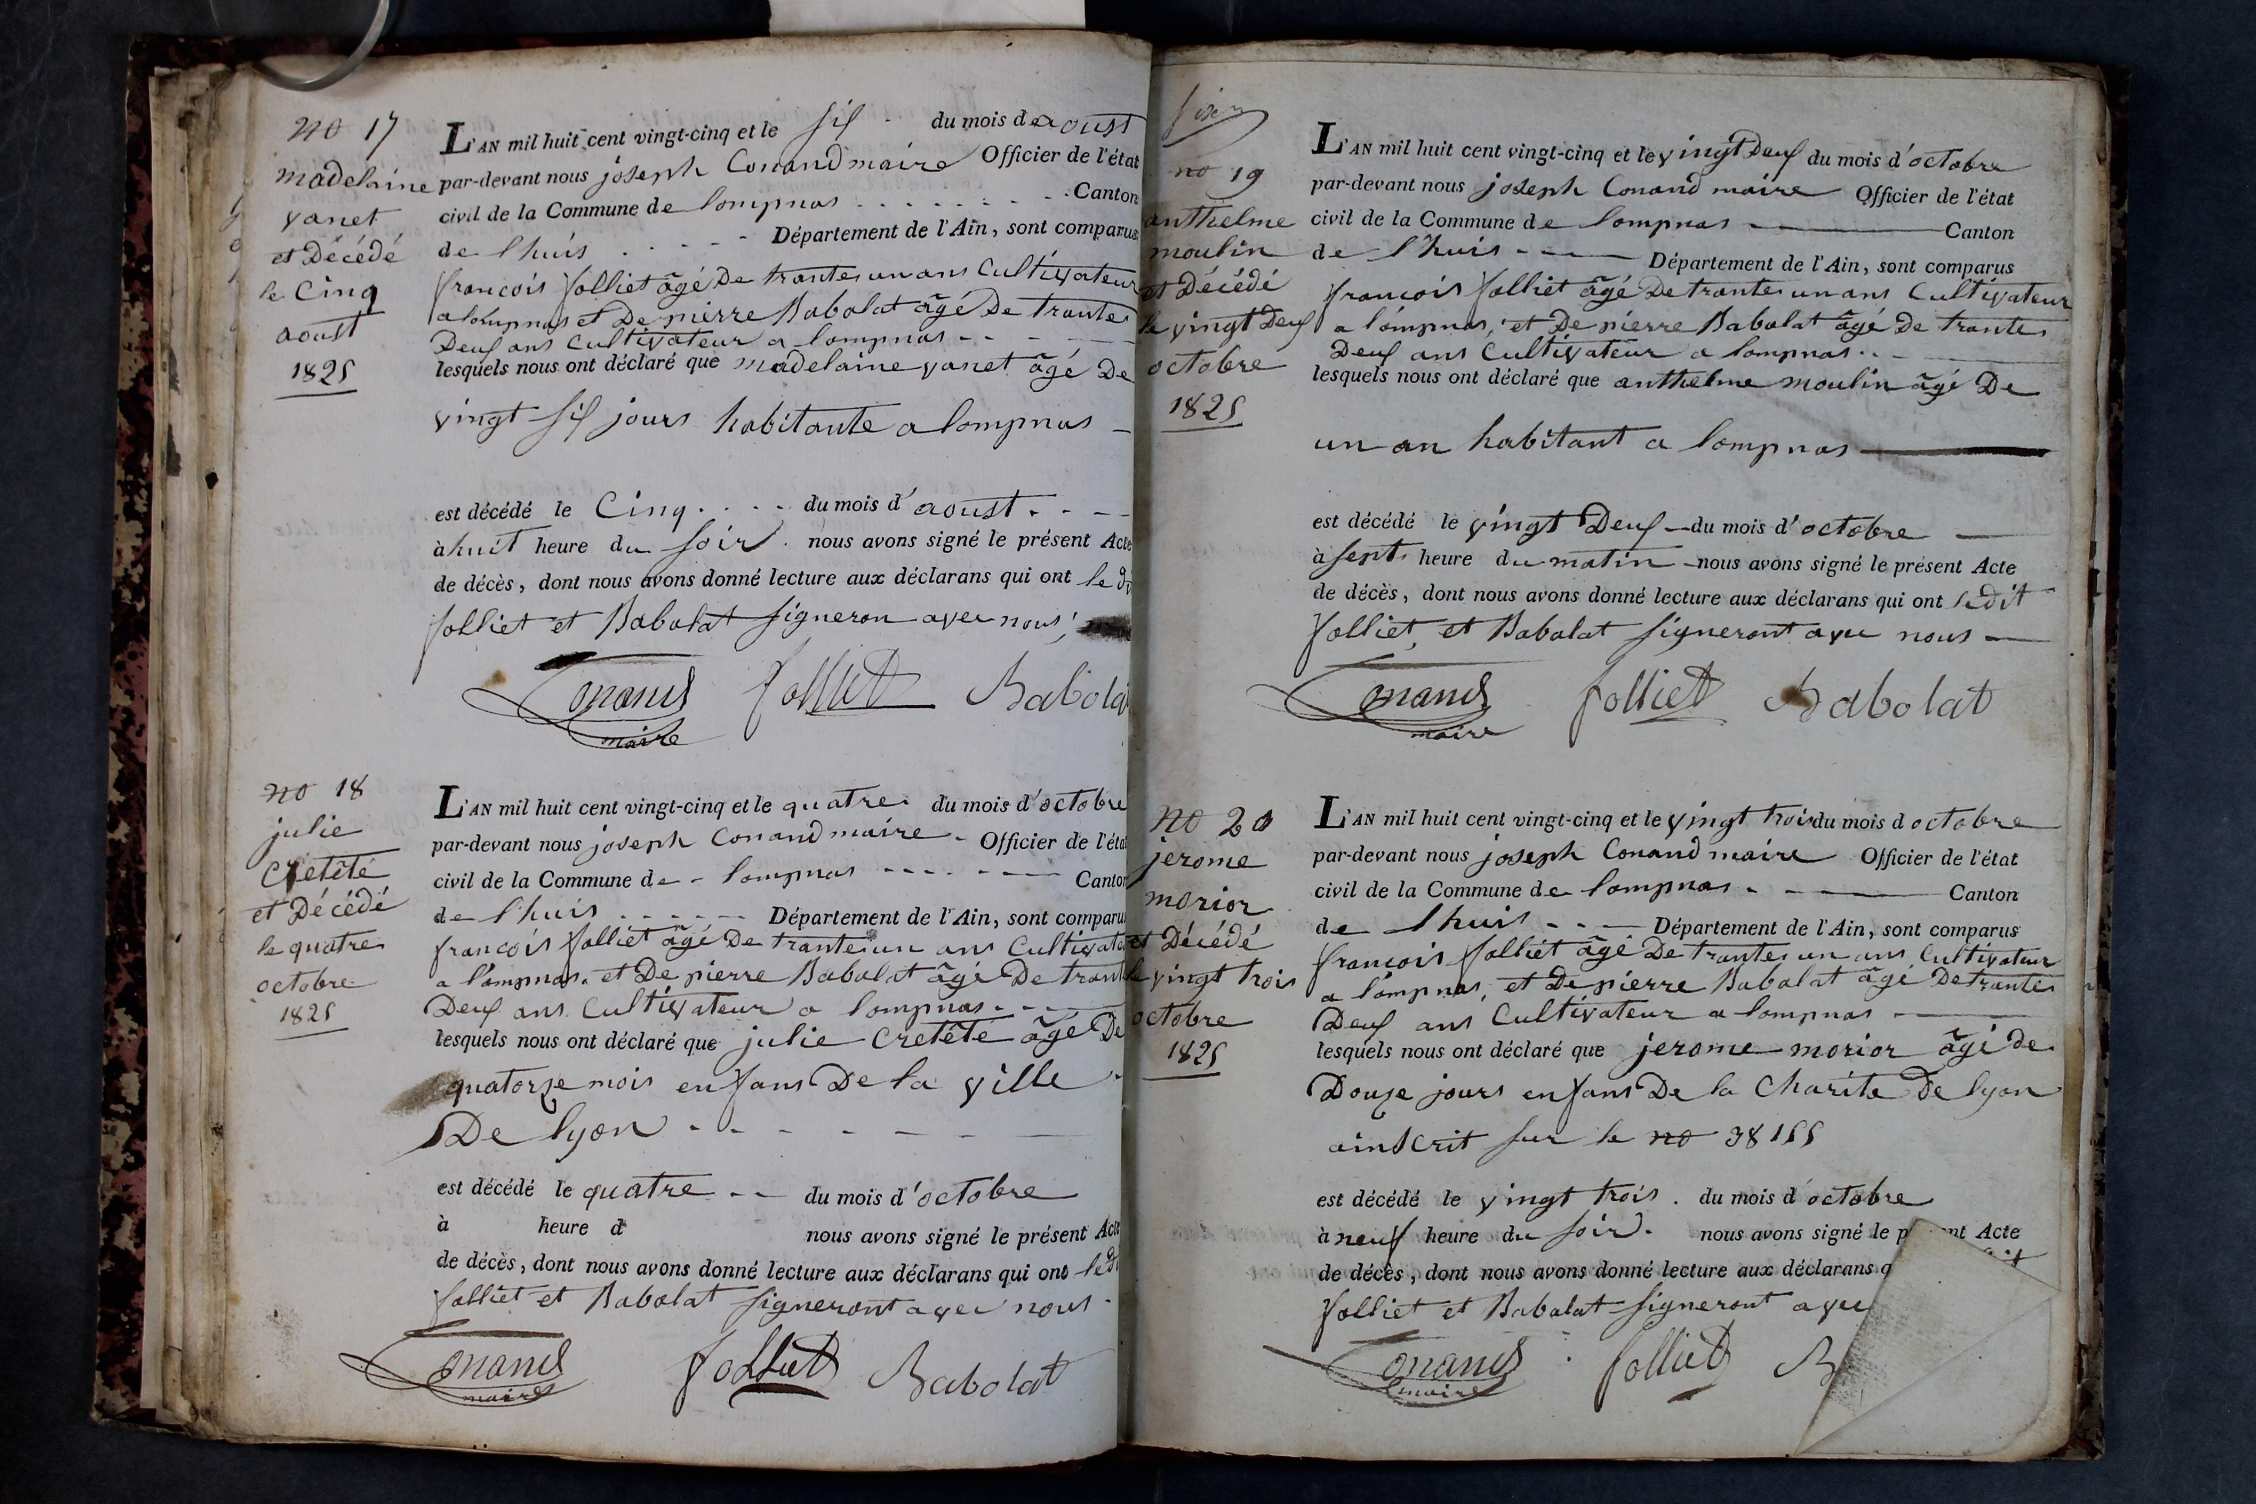 no 17
madelaine
vanet
et Décédé
le Cinq
aoust
1825
L'AN mil huit cent vingt-cinq et le six du mois de aoust
par-devant nous joseph Conand maire Officier de l'état
civil de la Commune de lompnas Canton
de lhuis Département de l'Ain, sont comparus
francois folliet âgé De trante un ans Cultivateur
a lompnas et De pierre Babolat âgé De trante
Deux ans Cultivateur a lompnas
lesquels nous ont déclaré que madelaine vanet âgé De
vingt six jours habitante a lompnas
est décédé le Cinq du mois d'aoust
à huit heure du soir nous avons signé le présent Acte
de décès, dont nous avons donné lecture aux déclarans qui ont le
folliet et Babolat signeron avec nous
Conand folliet Babola
maire
no 18
julie
Cretêté
et Décédé
le quatre
octobre
1825
L'AN mil huit cent vingt-cinq et le quatre du mois d'octobre
par-devant nous joseph Conand maire Officier de l'éta
civil de la Commune de lompnas Canton
de lhuis Département de l'Ain, sont comparu
francois folliet âgé De trante un ans Cultivate
a lompnas et De pierre Babolat âgé De trant
Deux ans Cultivateur a lompnas
lesquels nous ont déclaré que julie Cretête âgé De
quatorze mois enfans De la ville
De lyon
est décédé le quatre du mois d'octobre
à heure d nous avons signé le présent Acte
de décès, dont nous avons donné lecture aux déclarans qui ont ledi
folliet et Babolat signeront avec nous
Conand folliet Babolat
maire
no 19
anthelme
moulin
et Décédé
le vingt Deux
octobre
1825
L'AN mil huit cent vingt-cinq et le vingt Deux du mois d'octobre
par-devant nous joseph Conand maire Officier de l'état
civil de la Commune de lompnas Canton
de lhuis Département de l'Ain, sont comparus
francois folliet âgé De trante un ans Cultivateur
a lompnas, et De pierre Babolat âgé De trante
Deux ans Cultivateur a lompnas
lesquels nous ont déclaré que anthelme moulin âgé De
un an habitant a lompnas
est décédé le vingt Deux du mois d'octobre
à sept heure du matin nous avons signé le présent Acte
de décès, dont nous avons donné lecture aux déclarans qui ont ledit
folliet, et Babolat signeront avec nous
Conand folliet Babolat
maire
no 20
jerome
morior
et Décédé
le vingt trois
octobre
1825
L'AN mil huit cent vingt-cinq et le vingt trois du mois d octobre
par-devant nous joseph Conand maire Officier de l'état
civil de la Commune de lompnas Canton
de lhuis Département de l'Ain, sont comparus
francois folliet âgé De trante un ans Cultivateur
a lompnas, et De pierre Babolat âgé De trante
Deux ans Cultivateur a lompnas
lesquels nous ont déclaré que jerome morior âgé de
Douze jours enfans De la Charite De lyon
ainscrit sur le no 38155
est décédé le vingt trois du mois d octobre
à neuf heure du soir nous avons signé le p ent Acte
de décès, dont nous avons donné lecture aux déclarans q
folliet et Babolat signeront avec
Conand folliet B
maire